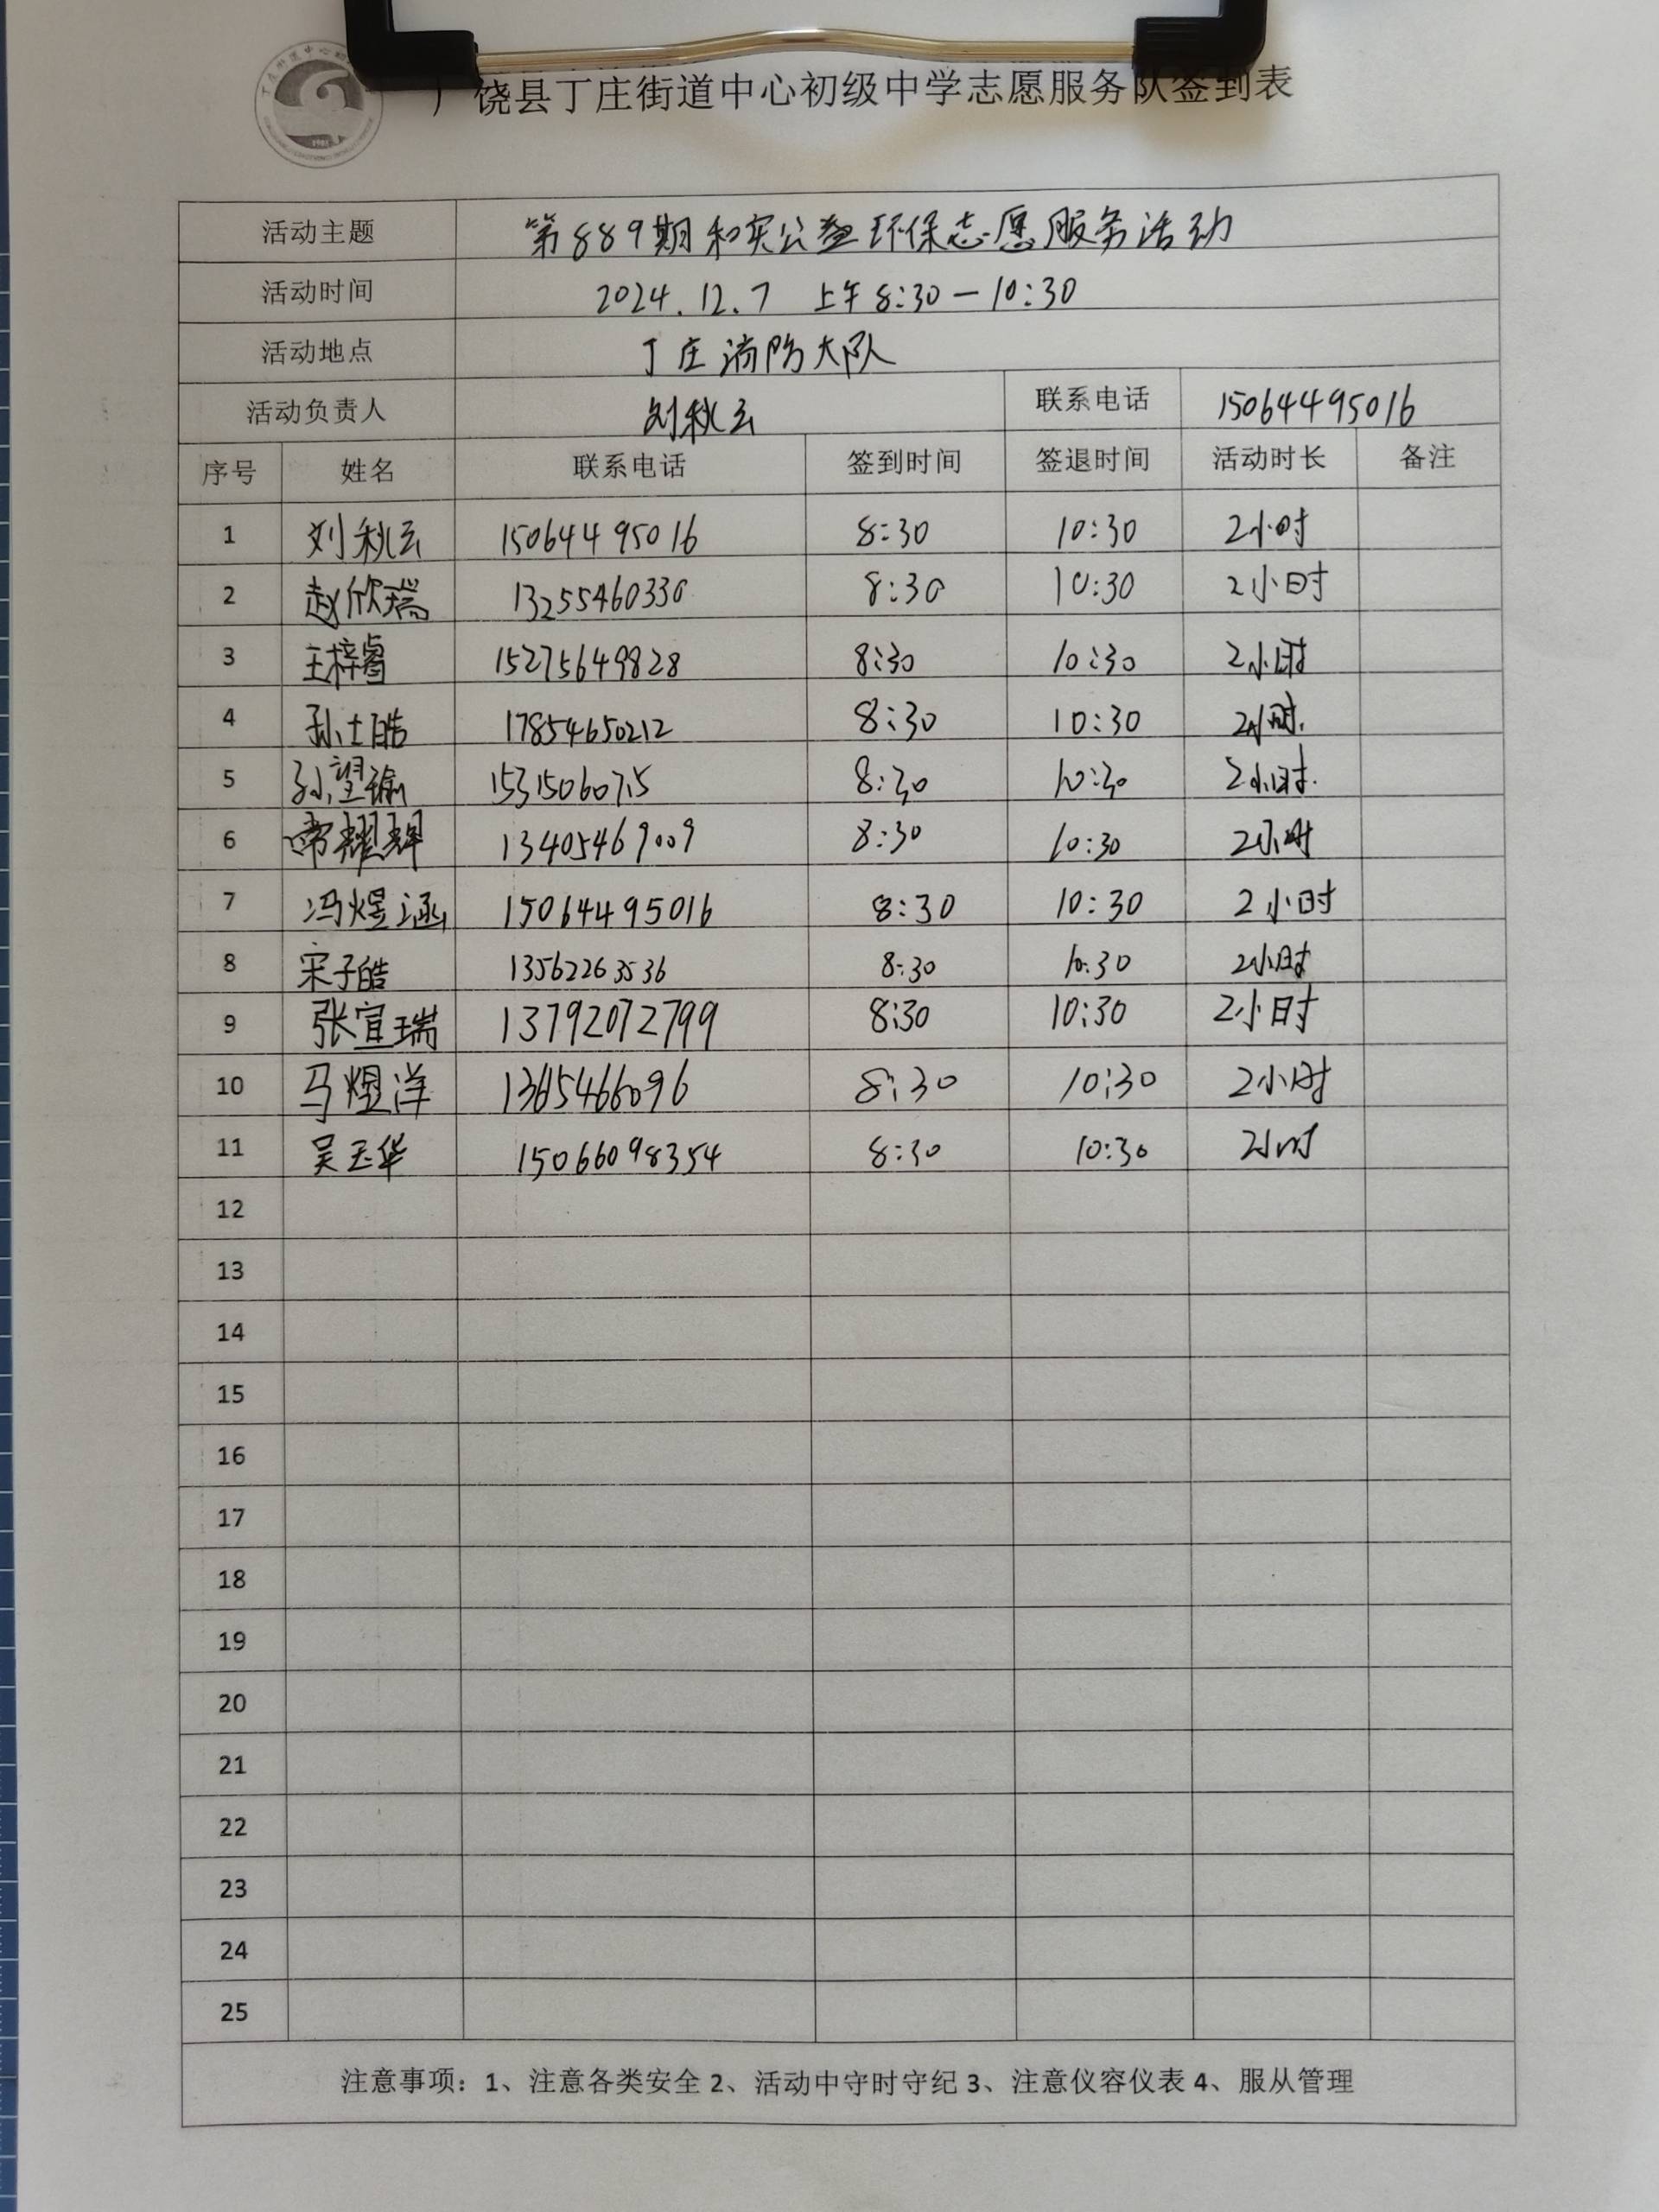 饶县丁庄街道中心初级中学志愿服务队签到表
活动主题 第889期和实公益环保志愿服务活动
活动时间 2024.12.7 上午8:30—10:30
活动地点 丁庄消防大队
活动负责人 刘秋云 联系电话 15064495016
序号 姓名 联系电话 签到时间 签退时间 活动时长 备注
1 刘秋云 15064495016 8:30 10:30 2小时
2 赵欣瑞 13255460330 8:30 10:30 2小时
3 王梓睿 15275649828 8:30 10:30 2小时
4 孙士皓 17854650212 8:30 10:30 2小时.
5 孙望瑜 15315060715 8:30 10:30 2小时.
6 常耀辉 13405469009 8:30 10:30 2小时
7 冯煜涵 15064495016 8:30 10:30 2小时
8 宋子皓 13562263536 8:30 10:30 2小时
9 张宜瑞 13792072799 8:30 10:30 2小时
10 马煜洋 8:30 10:30 2小时
11 吴玉华 15066098354 8:30 10:30 2小时
12
13
14
15
16
17
18
19
20
21
22
23
24
25
注意事项：1、注意各类安全 2、活动中守时守纪 3、注意仪容仪表 4、服从管理